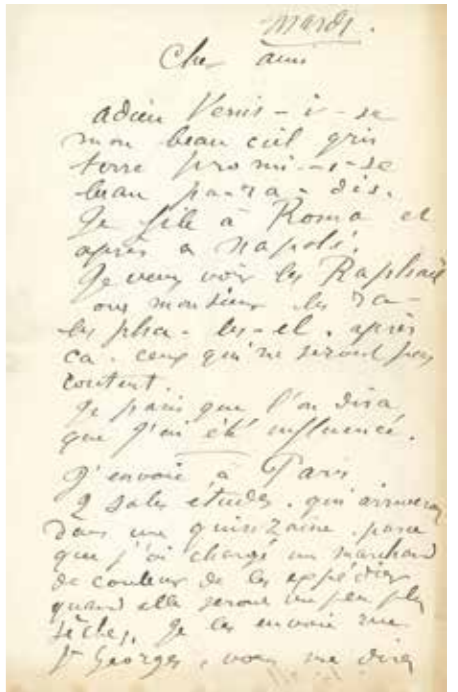 Mardi.
Cher ami
adieu Venis-i-se
mon beau ciel gris
terre promi-i-se
beau pa-ra-dis.
Je file à Roma et
après a Napoli.
Je veux voir les Raphael
oui monsieur les Ra-
les pha- les-el. après
ca. ceux qui ne seront pas
content.
Je parie que l'on dira
que j'ai été influencé.
J'envoie à Paris
2 sales études. qui arriveron
dans une quinzaine. parce
que j'ai chargé un marchand
de couleur de les expédier
quand elle seront un peu plus
sèches. Je les envoie rue
St Georges, vous me direz